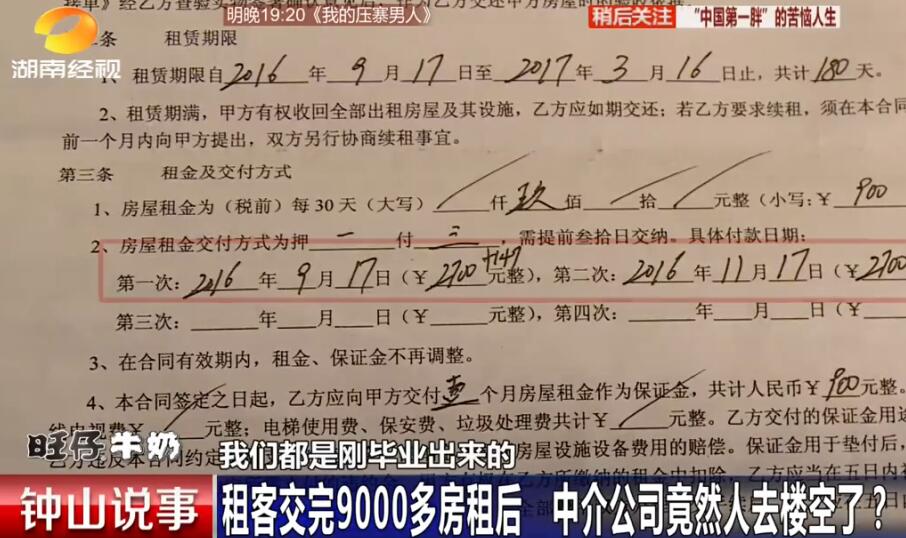 接单》经乙方查验实物
明晚19:20《我的压寨男人》
稍后关注 “中国第一胖”的苦恼人生
湖南经视
条 租赁期限
1、租赁期限自2016年9月17日至2017年3月16日止，共计180天。
2、租赁期满，甲方有权收回全部出租房屋及其设施，乙方应如期交还；若乙方要求续租，须在本合同
前一个月内向甲方提出，双方另行协商续租事宜。
第三条 租金及交付方式
1、房屋租金为（税前）每30天（大写）／仟玖佰／拾／元整（小写：￥900
2、房屋租金交付方式为押一付三，需提前叁拾日交纳。具体付款日期：
第一次：2016年9月17日（￥2700+147元整），第二次：2016年11月17日（￥2700
第三次：____年____月____日（￥____元整），第四次：____年____月____日（￥____元整）
3、在合同有效期内，租金、保证金不再调整。
4、本合同签定之日起，乙方应向甲方交付壹个月房屋租金作为保证金，共计人民币￥900元整。
视费￥／元整；电梯使用费、保安费、垃圾处理费共计￥／元整。乙方交付的保证金用途
乙方违反本合同约定
房屋设施设备费用的赔偿。保证金用于垫付后，
乙方应当在五日内
旺仔牛奶
我们都是刚毕业出来的
钟山说事
租客交完9000多房租后 中介公司竟然人去楼空了？